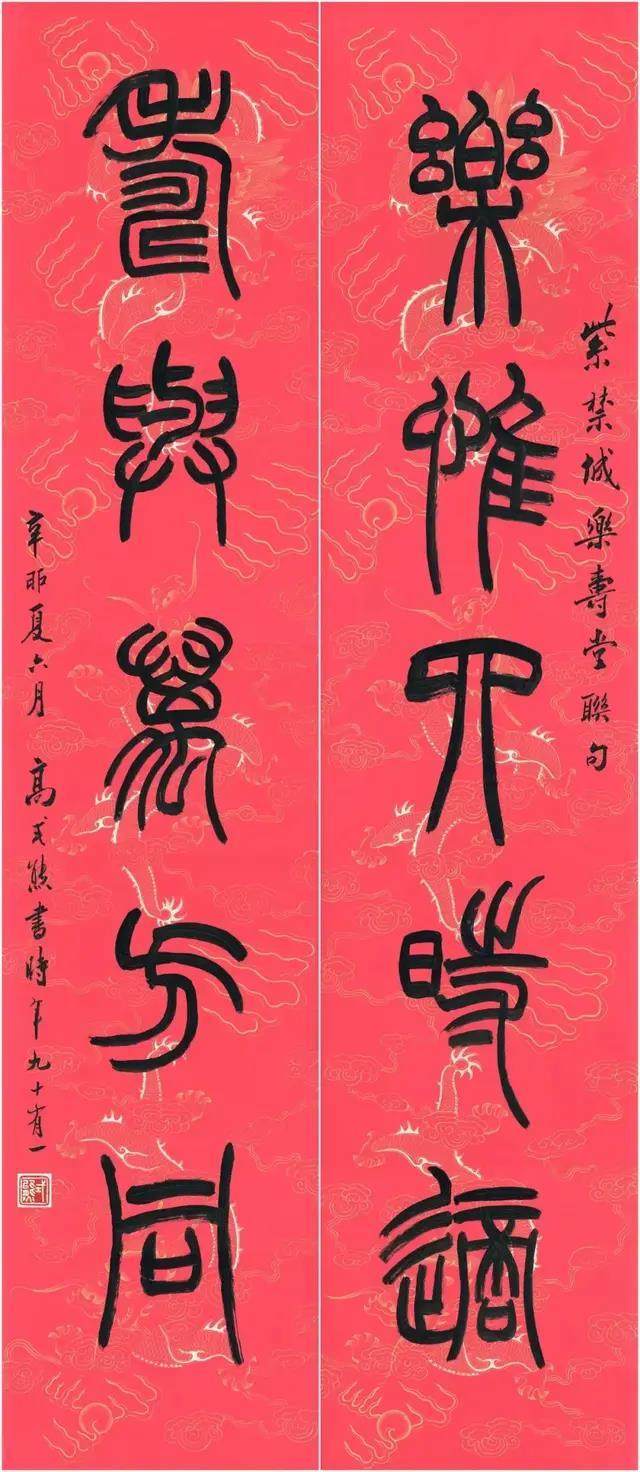 樂惟四時適
紫禁城樂壽堂聯句
壽與萬方同
辛卯夏六月 高式熊書時年九十有一
式熊